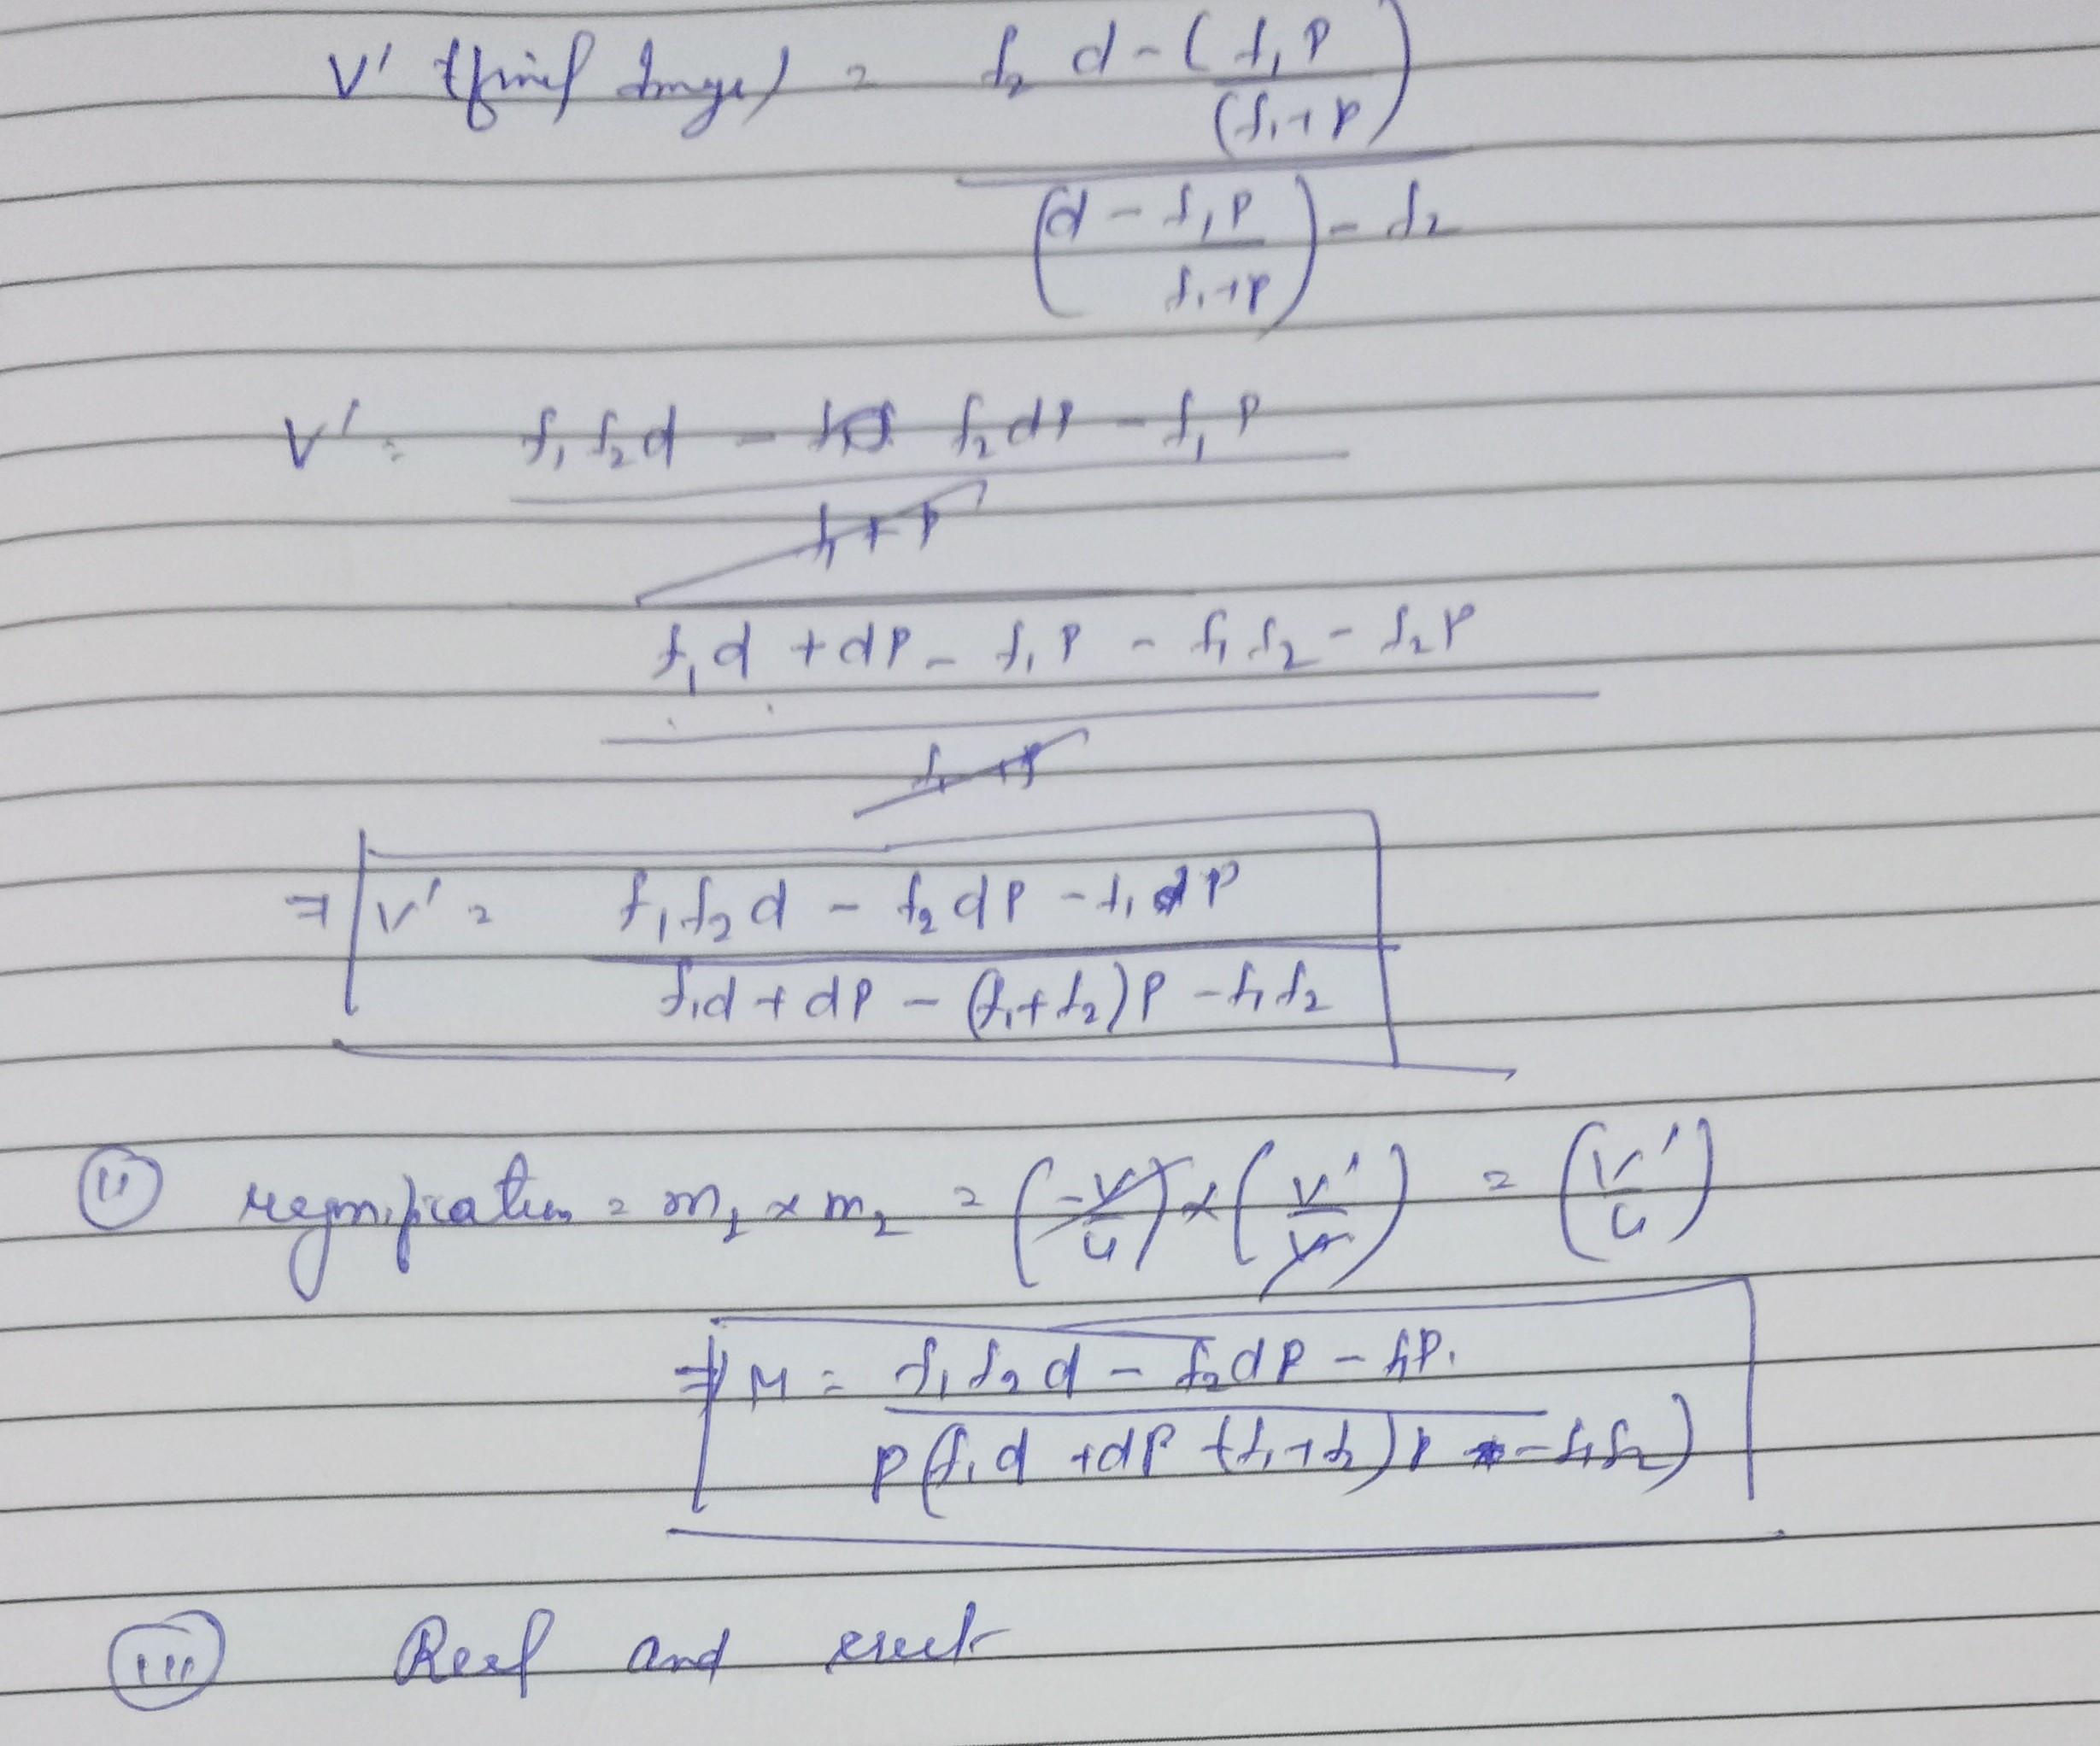 V' (final Image) = f₂ d - (f₁P / (f₁+P)) / (d - f₁P / f₁+P) - f₂
V' = f₁f₂d - f₂dP - f₁P / f₁+P
f₁d + dP - f₁P - f₁f₂ - f₂P / f₁+P
⇒ V' = f₁f₂d - f₂dP - f₁dP / f₁d + dP - (f₁+f₂)P - f₁f₂
(ii) magnification = m₁ × m₂ = (-V/u) × (V'/V) = (V'/u)
⇒ M = f₁f₂d - f₂dP - f₁P. / P(f₁d + dP -(f₁+f₂)P - f₁f₂)
(iii) Real and erect